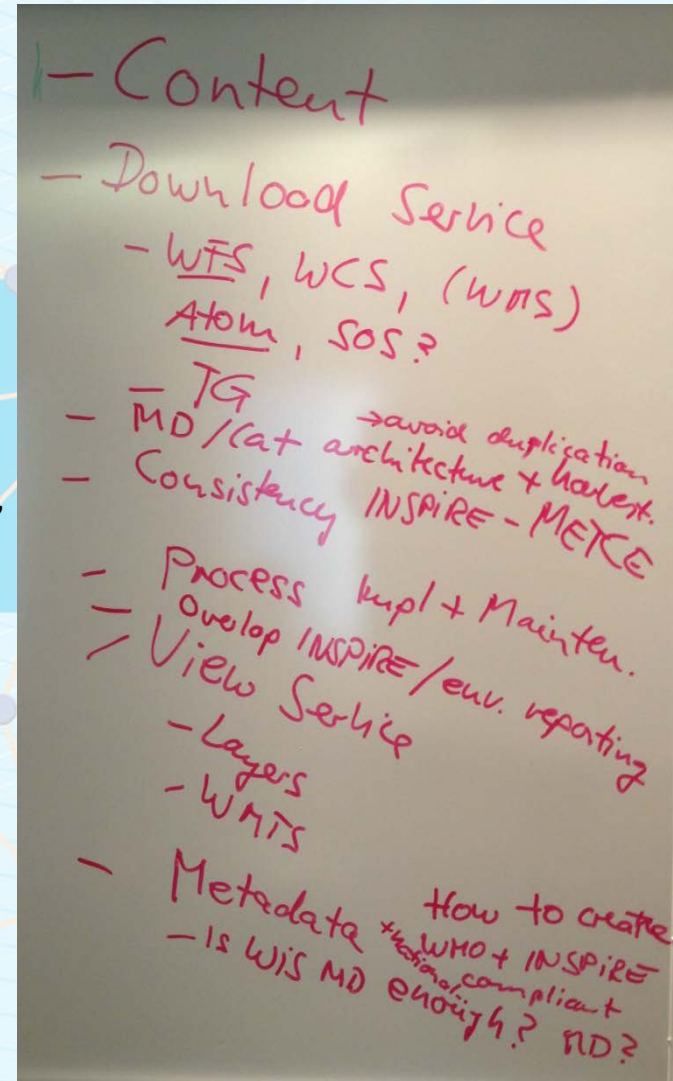 - Content
- Download Service
- WFS, WCS, (WMS)
Atom, SOS?
- TG
- MD/Cat architecture + harvest.
→ avoid duplication
- Consistency INSPIRE - METCE
- Process Impl + Mainten.
- Overlap INSPIRE/env. reporting
- View Service
- Layers
- WMTS
- Metadata
How to create
WMO + INSPIRE
+ national compliant
MD?
- Is WIS MD enough?